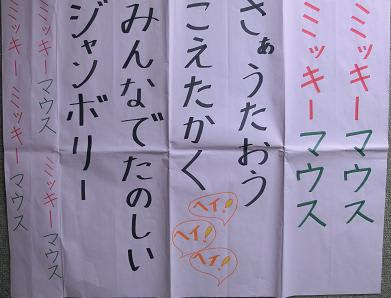 ミッキーマウス
ミッキーマウス
さぁうたおう
こえたかく
ヘイ!
ヘイ!
ヘイ!
みんなでたのしい
ジャンボリー
ミッキーマウス ミッキーマウス
ミッキーミッキーマウス